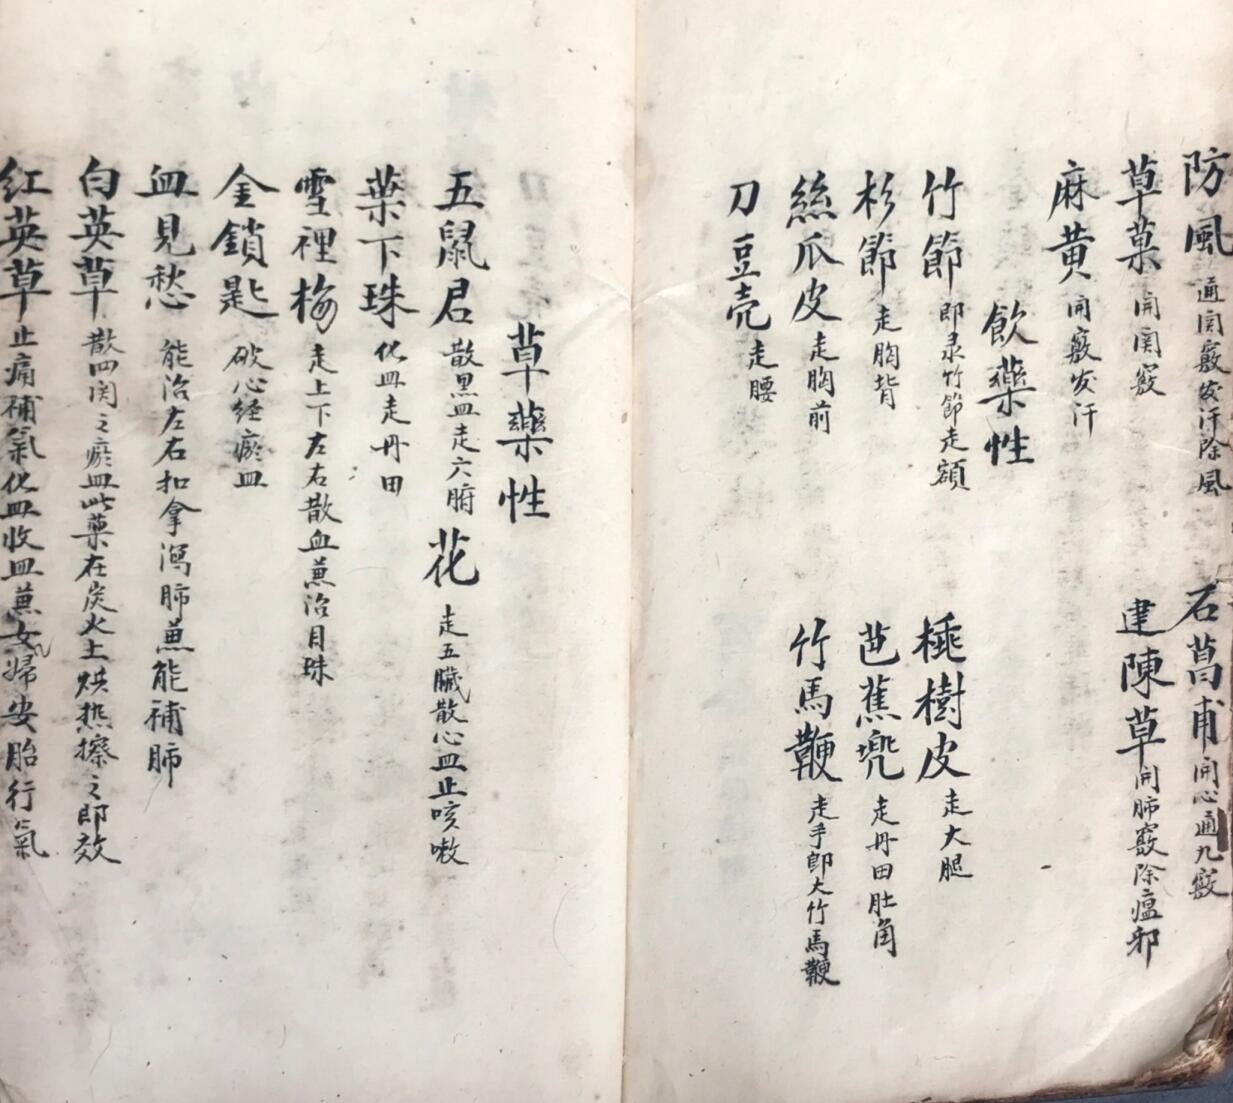 防風 通関竅发汗除風 石菖甫 開心通九竅
草菓 開関竅 建陳草 開肺竅除瘟邪
麻黄 開竅发汗
飲藥性
竹節 即录竹節走額 樹皮 走大腿
杉節 走胸背 芭蕉兠 走丹田肚角
絲瓜皮 走胸前 竹馬鞭 走手郎大竹馬鞭
刀豆壳 走腰
草藥性
五鼠君 散黑血走六腑 花 走五臟散心血止咳嗽
葉下珠 化血走丹田
雪裡梅 走上下左右散血兼治目珠
金鎖匙 破心経瘀血
血見愁 能治左右扣拿瀉肺兼能補肺
白英草 散四関之瘀血此藥在炭火上烘热擦之即效
紅英草 止痛補氣化血收血兼女婦安胎行氣